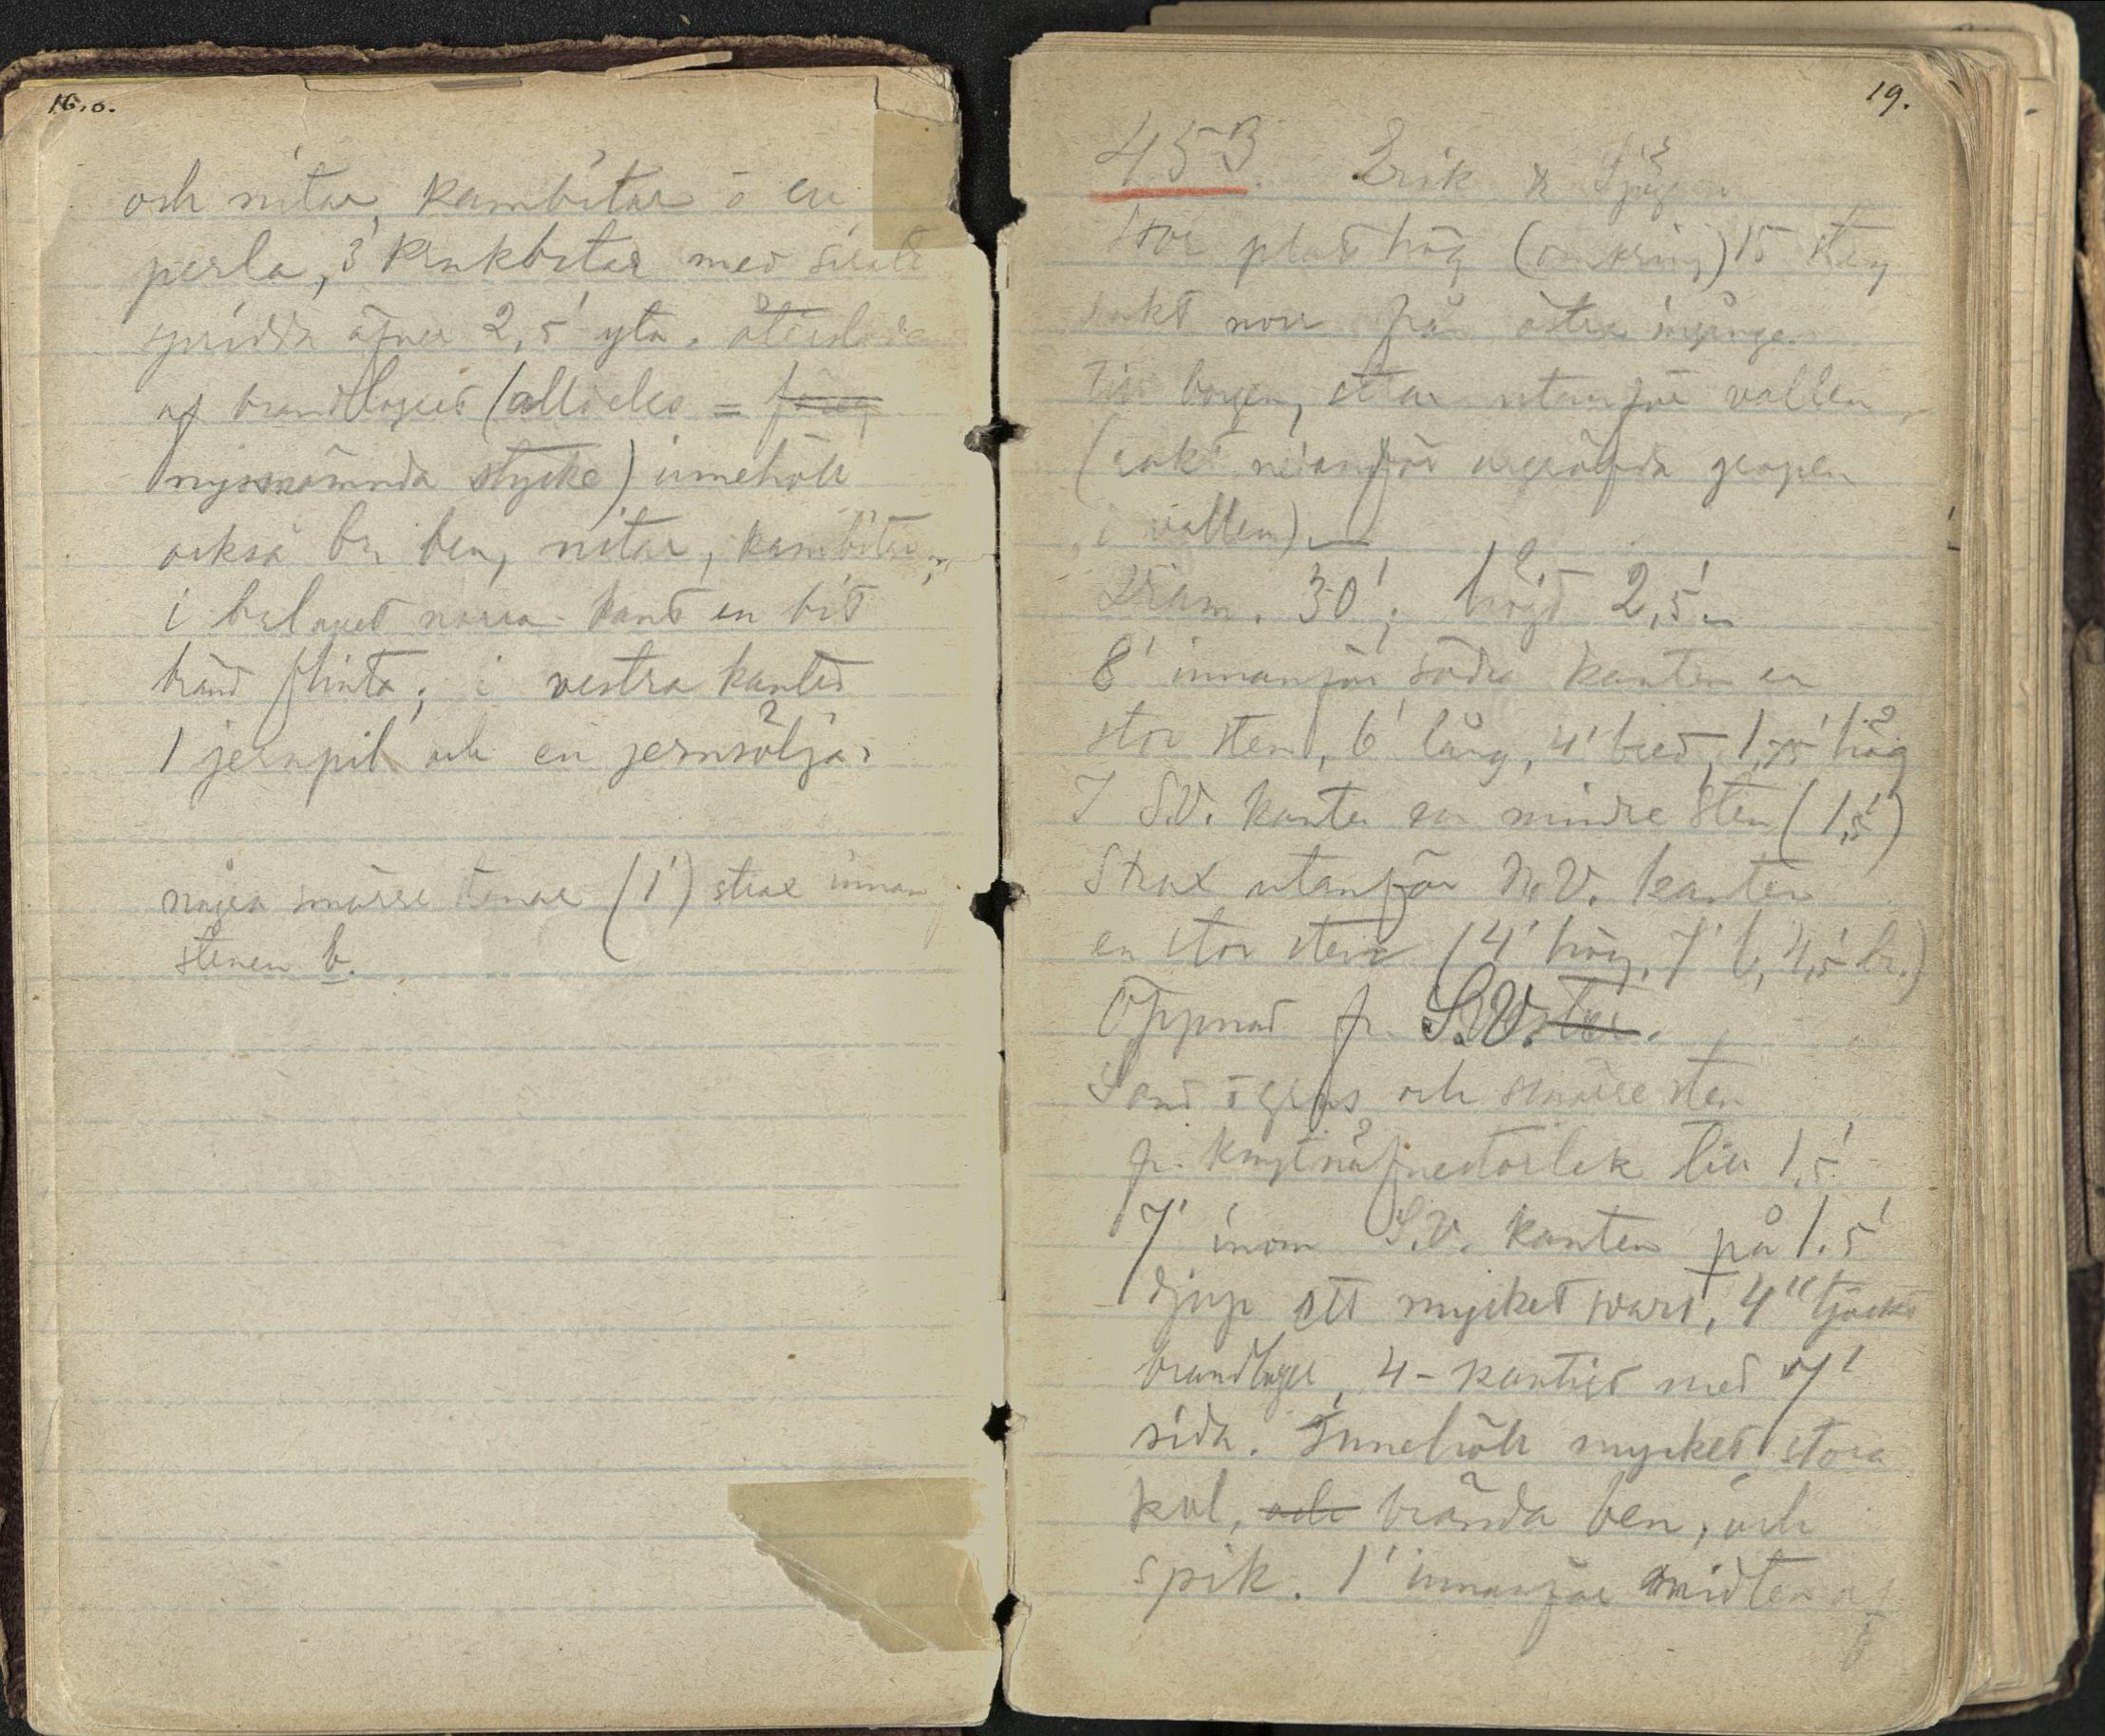 16,o.
och nitar, kambitar o en
perla, 3 krukbitar med sirater
spridda öfver 2,5' yta. återstoden
af brandlagret (alldeles = föreg
nyssnämnda stycke) innehöll
också br ben, nitar, kambitar,
i brlagret norra kant en bit
bränd flinta; i vestra kanten
1 jernpil och en jernsölja.
några smärre stenar (1') strax innan
stenen b.
19.
453. Erik &
Stor platt hög (omkring) 15 steg
rakt norr från östra ingången
till borgen, strax utanför vallen,
(rakt nedanför uregräfda gropen
i vallen).—
Diam. 30'; höjd 2,5'.
8' innanför södra kanten en
stor sten, 6' lång, 4' bred, 1,75' hög
I S.V. kanten en mindre sten (1,5')
Strax utanför N.V. kanten
en stor sten (4' hög, 7' l, 4,5' br.)
Öppnad fr. S.V.
Sand o grus och smärre sten
fr. knytnäfvestorlek till 1,5'
7' inom S.V. kanten på 1.5'
djup ett mycket svart, 4" tjockt
brandlager, 4-kantigt med 7'
sida. Innehöll mycket stora
kol, och brända ben, och
spik. 1' innanför midten af